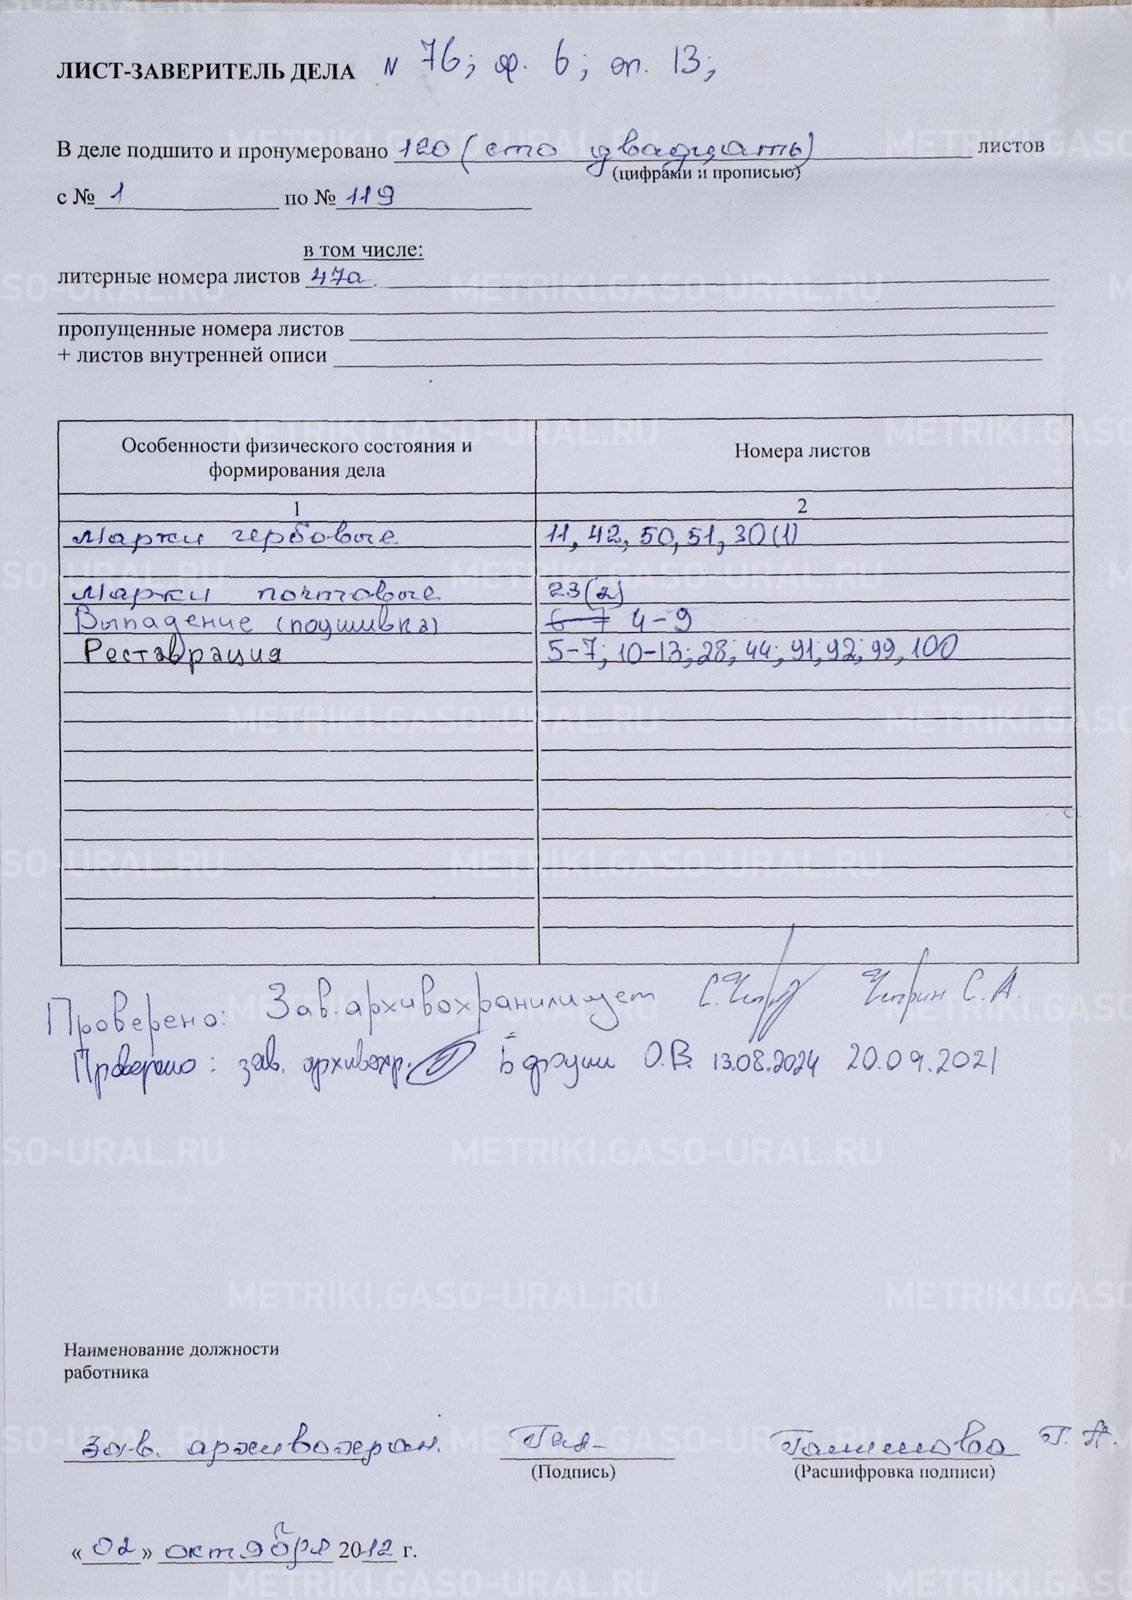 ЛИСТ-ЗАВЕРИТЕЛЬ ДЕЛА N 76; ф. 6; оп. 13;
В деле подшито и пронумеровано 120 (сто двадцать) листов
(цифрами и прописью)
с № 1 по № 119
в том числе:
литерные номера листов 47а
пропущенные номера листов
+ листов внутренней описи
Особенности физического состояния и формирования дела Номера листов
1 2
Марки гербовые 11, 42, 50, 51, 30(1)
Марки почтовые 23(2)
Выпадение (подшивка) 6-7 4-9
Реставрация 5-7; 10-13; 28; 44; 91, 92; 99, 100
Проверено: Зав. архивохранилищем С. А.
Проверено: зав. архивохр. О.В. 13.08.2024 20.09.2021
Наименование должности
работника
Зав. архивохран. Галимова Г. А.
(Подпись) (Расшифровка подписи)
«02» октября 2012 г.
METRIKI.GASO-URAL.RU